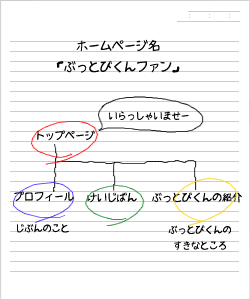 ホームページ名
『ぶっとびくんファン』
いらっしゃいませー
トップページ
プロフィール
けいじばん
ぶっとびくんの紹介
じぶんのこと
ぶっとびくんの
すきなところ